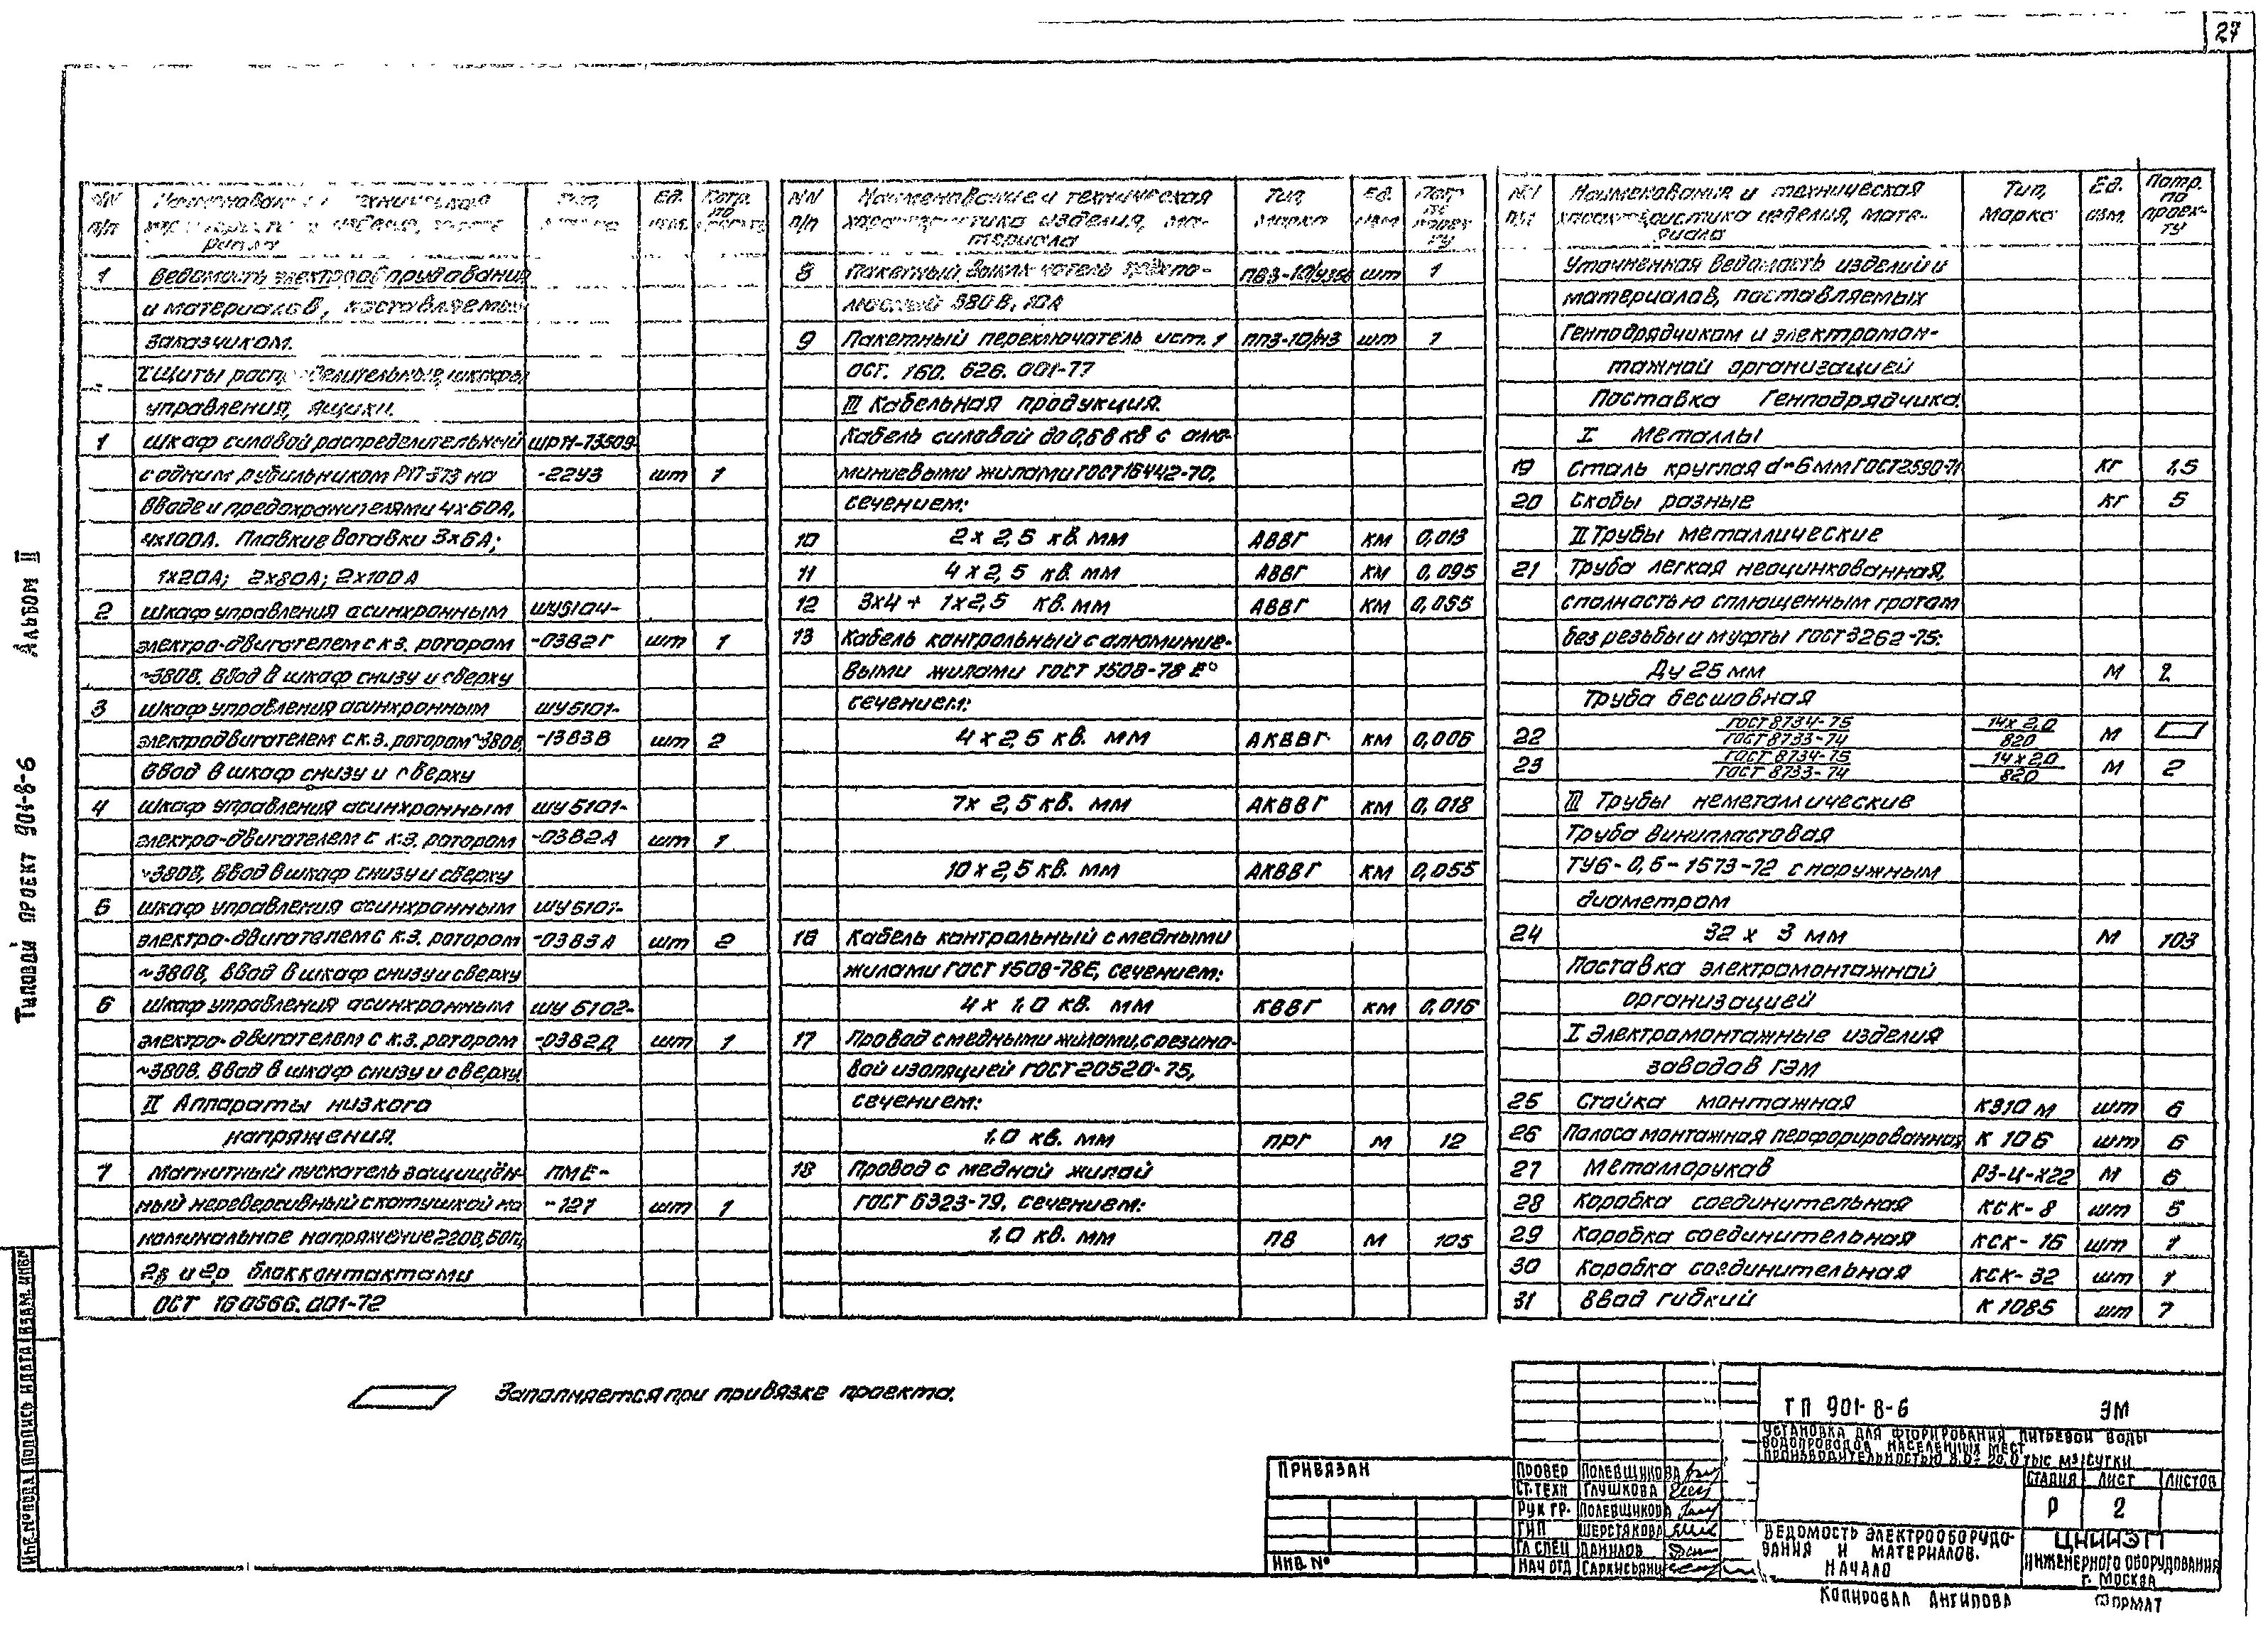 27
Альбом II
Типовой проект 901-8-6
NN п/п
Ед. изм.
Потр. по проекту
1 Ведомость электрооборудования
и материалов, поставляемых
заказчиком.
I Щиты распределительные, шкафы
управления, ящики.
1 Шкаф силовой распределительный ШР11-73509-
с одним рубильником Р17-373 на -22У3 шт 1
вводе и предохранителями 4х60А,
4х100А. Плавкие вставки 3х6А;
1х20А; 2х80А; 2х100А
2 Шкаф управления асинхронным ШУ5104-
электро-двигателем с к.з. ротором -0382Г шт 1
~380В. Ввод в шкаф снизу и сверху
3 Шкаф управления асинхронным ШУ5101-
электродвигателем с к.з. ротором ~380В, -1383В шт 2
Ввод в шкаф снизу и сверху
4 Шкаф управления асинхронным ШУ5101-
электро-двигателем с к.з. ротором -0382А шт 1
~380В, Ввод в шкаф снизу и сверху
5 Шкаф управления асинхронным ШУ5101-
электро-двигателем с к.з. ротором -0383А шт 2
~380В, Ввод в шкаф снизу и сверху
6 Шкаф управления асинхронным ШУ 5102-
электро-двигателем с к.з. ротором -0382Д шт 1
~380В. Ввод в шкаф снизу и сверху
II Аппараты низкого
напряжения.
7 Магнитный пускатель защищён- ПМЕ-
ный нереверсивный с катушкой на -121 шт 1
номинальное напряжение 220В, 50Гц,
2з и 2р блокконтактами
ОСТ 160566.001-72
NN п/п Наименование и техническая характеристика изделия, материала Тип, марка Ед. изм Потр. по проекту
8 Пакетный выключатель трехпо- ПВ3-10/У3 шт 1
люсный 380В, 10А
9 Пакетный переключатель исп. 1 ПП3-10/Н3 шт 1
ОСТ. 160. 626. 001-77
III Кабельная продукция.
Кабель силовой до 0,66 кв с алю-
миниевыми жилами ГОСТ 16442-70,
сечением:
10 2х 2,5 кв. мм АВВГ км 0,013
11 4 х 2,5 кв. мм АВВГ км 0,095
12 3х4 + 1х2,5 кв. мм АВВГ км 0,055
13 Кабель контрольный с алюминие-
выми жилами ГОСТ 1508-78 Е
сечением:
4 х 2,5 кв. мм АКВВГ км 0,006
7х 2,5 кв. мм АКВВГ км 0,018
10 х 2,5 кв. мм АКВВГ км 0,055
16 Кабель контрольный с медными
жилами ГОСТ 1508-78Е, сечением:
4 х 1,0 кв. мм КВВГ км 0,016
17 Провод с медными жилами, с резино-
вой изоляцией ГОСТ 20520-75,
сечением:
1,0 кв. мм ПРГ м 12
18 Провод с медной жилой
ГОСТ 6323-79, сечением:
1,0 кв. мм ПВ м 105
Наименование и техническая характеристика изделия, материала Тип, марка Ед. изм. Потр. по проекту
Уточненная ведомость изделий и
материалов, поставляемых
Генподрядчиком и электромон-
тажной организацией
Поставка Генподрядчика.
I Металлы
19 Сталь круглая d=6мм ГОСТ 2590-71 кг 1,5
20 Скобы разные кг 5
II Трубы металлические
21 Труба легкая неоцинкованная,
с полностью сплющенным гратом
без резьбы и муфты ГОСТ 3262-75:
Ду 25 мм м 2
Труба бесшовная
22 ГОСТ 8734-75 / ГОСТ 8733-74 14х 2,0 / В20 м
23 ГОСТ 8734-75 / ГОСТ 8733-74 14х2,0 / В20 м 2
III Трубы неметаллические
Труба винипластовая
ТУ6-0,5-1573-72 с наружным
диаметром
24 32 х 3 мм м 103
Поставка электромонтажной
организацией
I Электромонтажные изделия
заводов ГЭМ
25 Стойка монтажная К310 м шт 6
26 Полоса монтажная перфорированная К 106 шт 6
27 Металлорукав Р3-Ц-Х22 м 6
28 Коробка соединительная КСК-8 шт 5
29 Коробка соединительная КСК-16 шт 1
30 Коробка соединительная КСК-32 шт 1
31 Ввод гибкий К 1085 шт 7
Заполняется при привязке проекта.
Инв. № подл Подпись и дата Взам. инв.
Привязан
Инв. №
Провер Полевщикова
Ст. техн Глушкова
Рук гр. Полевщикова
ГИП Шерстякова
Гл спец Данилов
Нач отд Саркисьянц
ТП 901-8-6 ЭМ
Установка для фторирования питьевой воды
водопроводов населенных мест
производительностью 8,0÷20,0 тыс м³/сутки
Стадия Лист Листов
Р 2
Ведомость электрооборудо-
вания и материалов.
Начало
ЦНИИЭП
инженерного оборудования
г. Москва
Копировал Антипова Формат